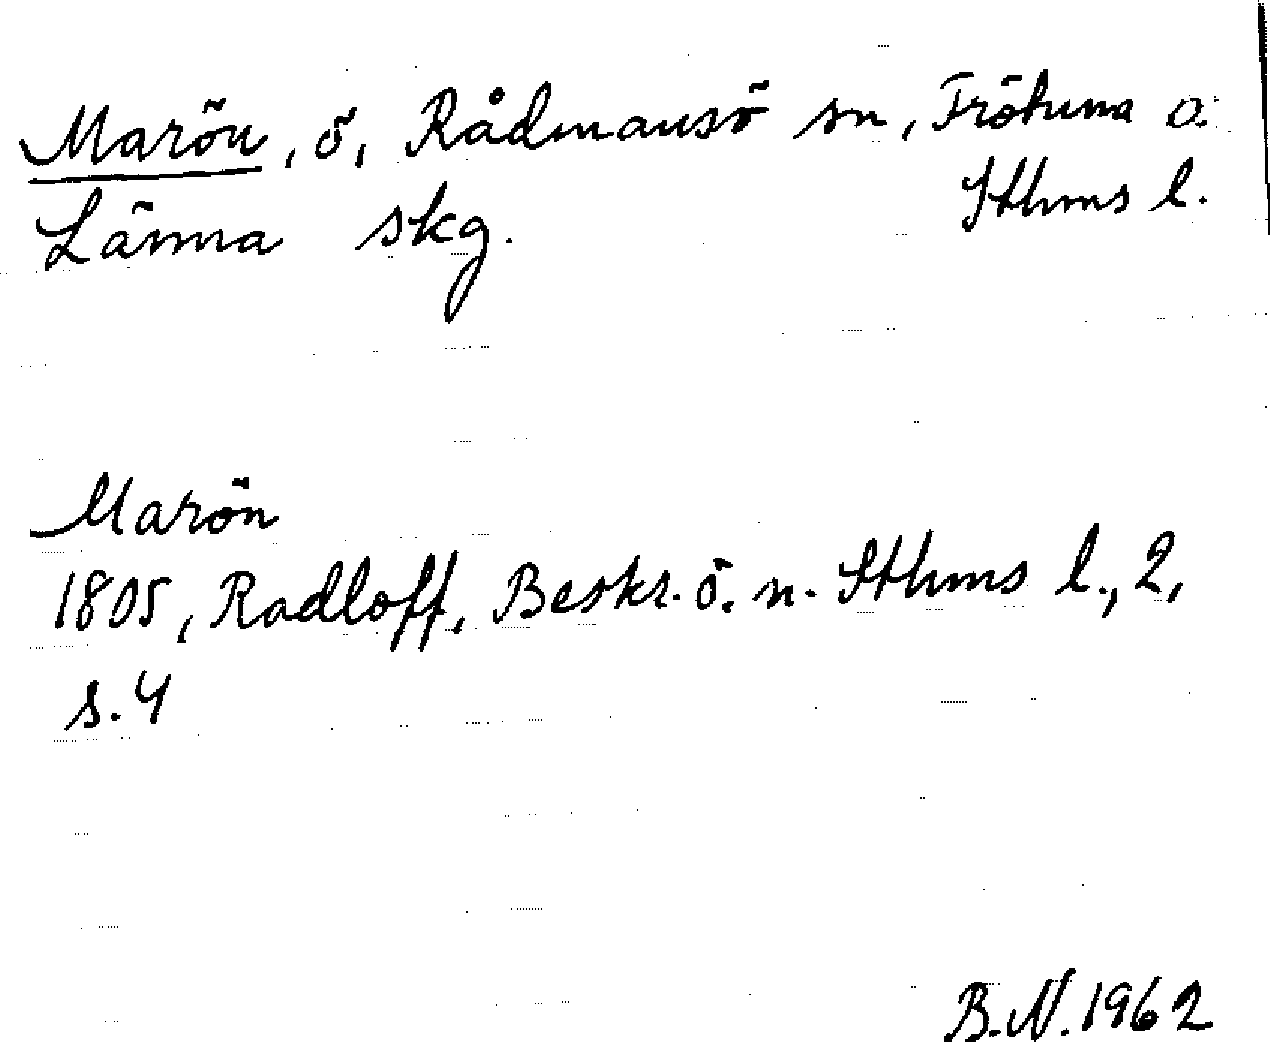 Marön, ö, Rådmansö sn, Frötuna o.
Länna skg. Sthms l.
Marön
1805, Radloff, Beskr. ö. n. Sthms l., 2,
s. 4
B.N. 1962